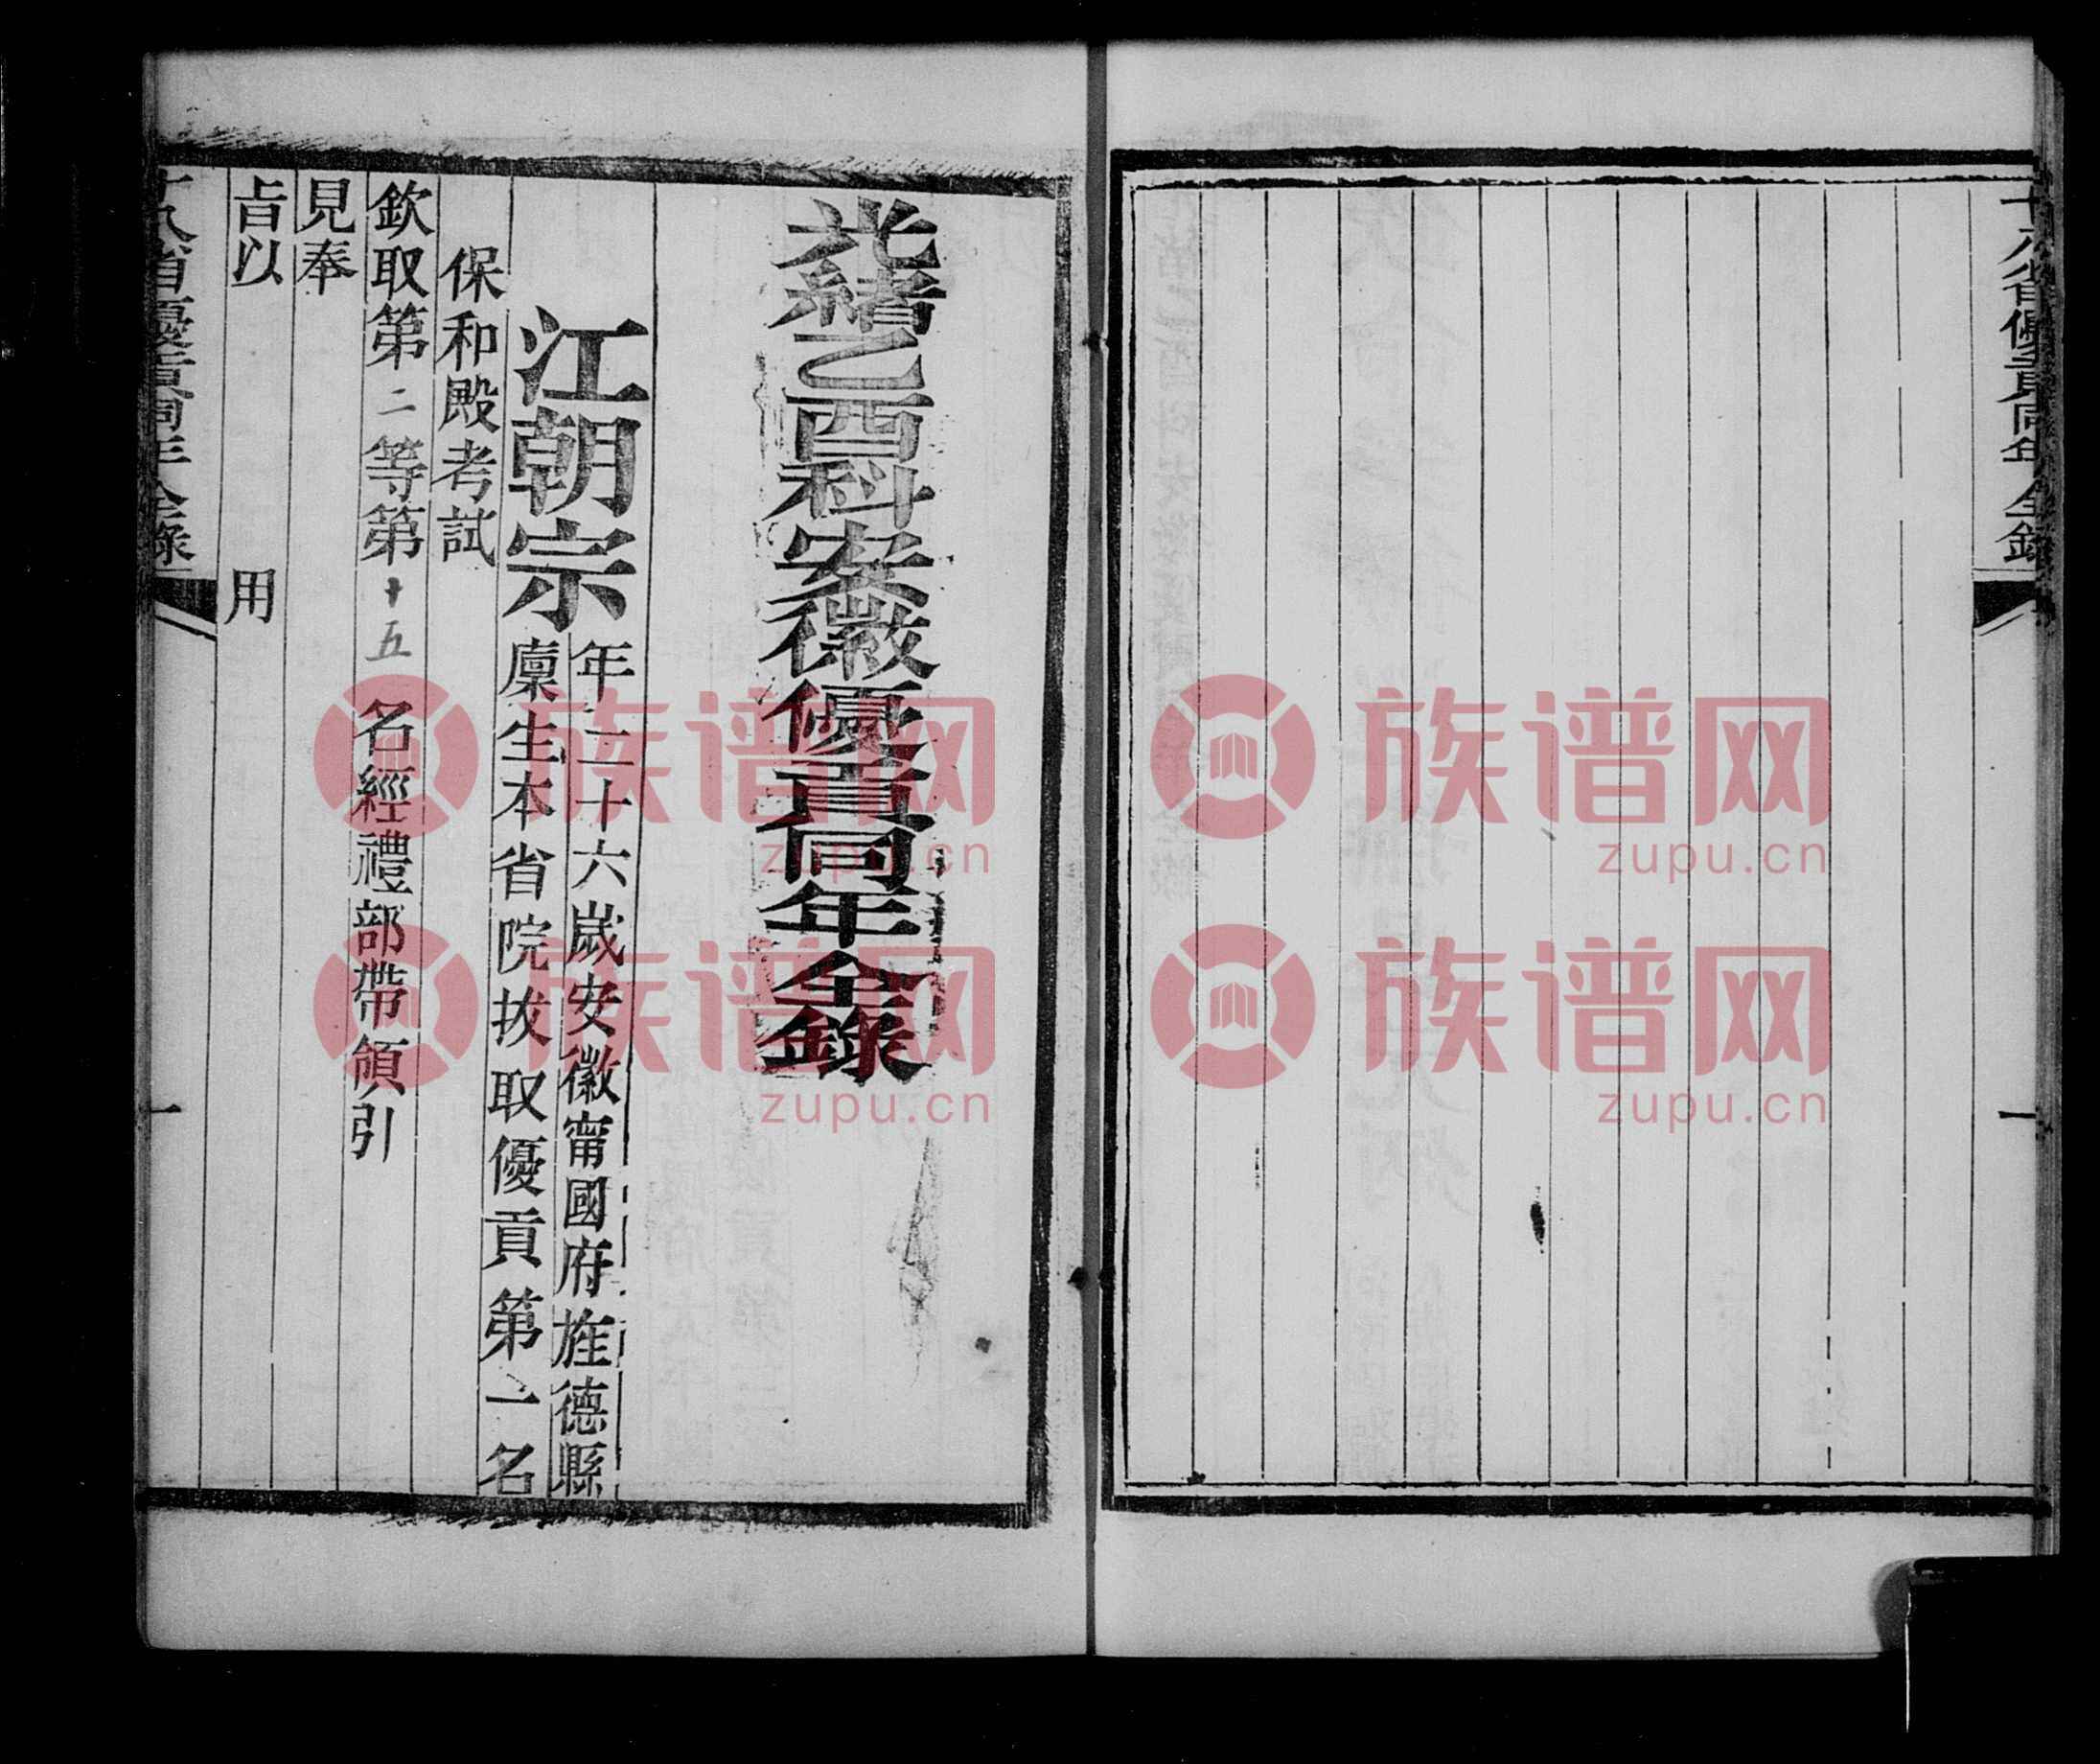 十八省優貢同年全錄
一
光緒乙酉科安徽優貢同年全錄
江朝宗
年二十六歲安徽甯國府旌德縣
廩生本省院拔取優貢第一名
保和殿考試
欽取第二等第十五名經禮部帶領引
見奉
旨以 用
十八省優貢同年全錄
一
族谱网
zupu.cn
族谱网
zupu.cn
族谱网
zupu.cn
族谱网
zupu.cn